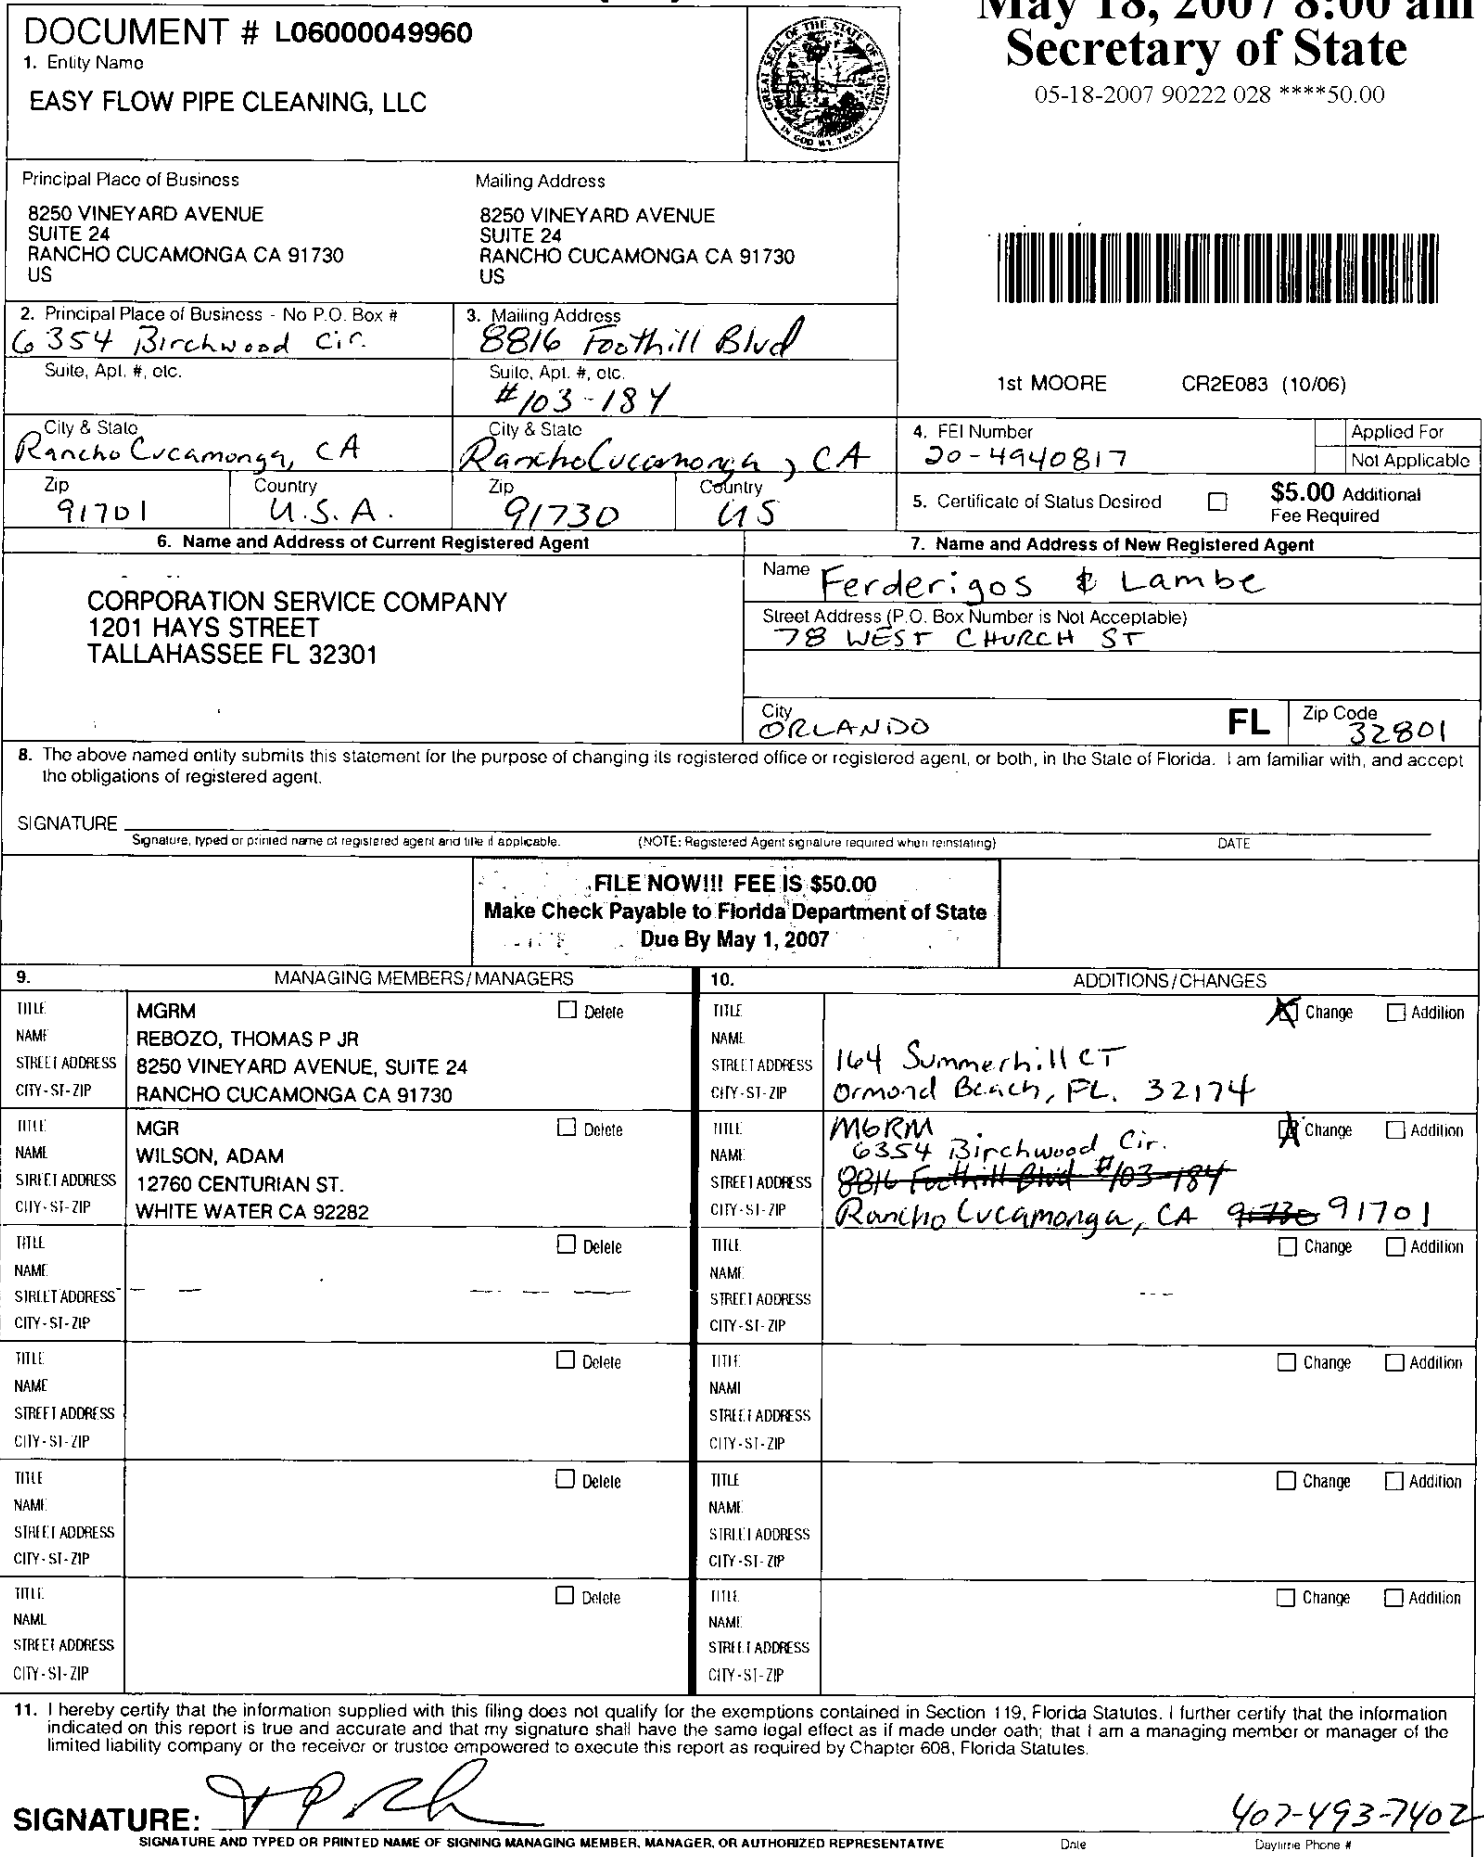 May 18, 2007 8:00 am
Secretary of State
05-18-2007 90222 028 ****50.00
DOCUMENT # L06000049960
1. Entity Name
EASY FLOW PIPE CLEANING, LLC
GREAT SEAL OF THE STATE OF FLORIDA
IN GOD WE TRUST
Principal Place of Business
8250 VINEYARD AVENUE
SUITE 24
RANCHO CUCAMONGA CA 91730
US
Mailing Address
8250 VINEYARD AVENUE
SUITE 24
RANCHO CUCAMONGA CA 91730
US
2. Principal Place of Business - No P.O. Box #
6354 Birchwood Cir.
Suite, Apt. #, etc.
City & State
Rancho Cucamonga, CA
Zip
91701
Country
U.S.A.
3. Mailing Address
8816 Foothill Blvd
Suite, Apt. #, etc.
#103-184
City & State
Rancho Cucamonga, CA
Zip
91730
Country
US
1st MOORE CR2E083 (10/06)
4. FEI Number
20-4940817
Applied For
Not Applicable
5. Certificate of Status Desired
$5.00 Additional
Fee Required
6. Name and Address of Current Registered Agent
CORPORATION SERVICE COMPANY
1201 HAYS STREET
TALLAHASSEE FL 32301
7. Name and Address of New Registered Agent
Name Ferderigos & Lambe
Street Address (P.O. Box Number is Not Acceptable)
78 WEST CHURCH ST
City
ORLANDO
FL
Zip Code
32801
8. The above named entity submits this statement for the purpose of changing its registered office or registered agent, or both, in the State of Florida. I am familiar with, and accept
the obligations of registered agent.
SIGNATURE
Signature, typed or printed name of registered agent and title if applicable. (NOTE: Registered Agent signature required when reinstating) DATE
FILE NOW!!! FEE IS $50.00
Make Check Payable to Florida Department of State
Due By May 1, 2007
9. MANAGING MEMBERS/MANAGERS
TITLE MGRM Delete
NAME REBOZO, THOMAS P JR
STREET ADDRESS 8250 VINEYARD AVENUE, SUITE 24
CITY-ST-ZIP RANCHO CUCAMONGA CA 91730
TITLE MGR Delete
NAME WILSON, ADAM
STREET ADDRESS 12760 CENTURIAN ST.
CITY-ST-ZIP WHITE WATER CA 92282
TITLE Delete
NAME
STREET ADDRESS
CITY-ST-ZIP
TITLE Delete
NAME
STREET ADDRESS
CITY-ST-ZIP
TITLE Delete
NAME
STREET ADDRESS
CITY-ST-ZIP
TITLE Delete
NAME
STREET ADDRESS
CITY-ST-ZIP
10. ADDITIONS/CHANGES
TITLE X Change Addition
NAME
STREET ADDRESS 164 Summerhill CT
CITY-ST-ZIP Ormond Beach, FL. 32174
TITLE MGRM X Change Addition
NAME 6354 Birchwood Cir.
STREET ADDRESS 8816 Foothill Blvd #103-184
CITY-ST-ZIP Rancho Cucamonga, CA 91730 91701
TITLE Change Addition
NAME
STREET ADDRESS
CITY-ST-ZIP
TITLE Change Addition
NAME
STREET ADDRESS
CITY-ST-ZIP
TITLE Change Addition
NAME
STREET ADDRESS
CITY-ST-ZIP
TITLE Change Addition
NAME
STREET ADDRESS
CITY-ST-ZIP
11. I hereby certify that the information supplied with this filing does not qualify for the exemptions contained in Section 119, Florida Statutes. I further certify that the information
indicated on this report is true and accurate and that my signature shall have the same legal effect as if made under oath; that I am a managing member or manager of the
limited liability company or the receiver or trustee empowered to execute this report as required by Chapter 608, Florida Statutes.
SIGNATURE:
407-493-7402
SIGNATURE AND TYPED OR PRINTED NAME OF SIGNING MANAGING MEMBER, MANAGER, OR AUTHORIZED REPRESENTATIVE Date Daytime Phone #